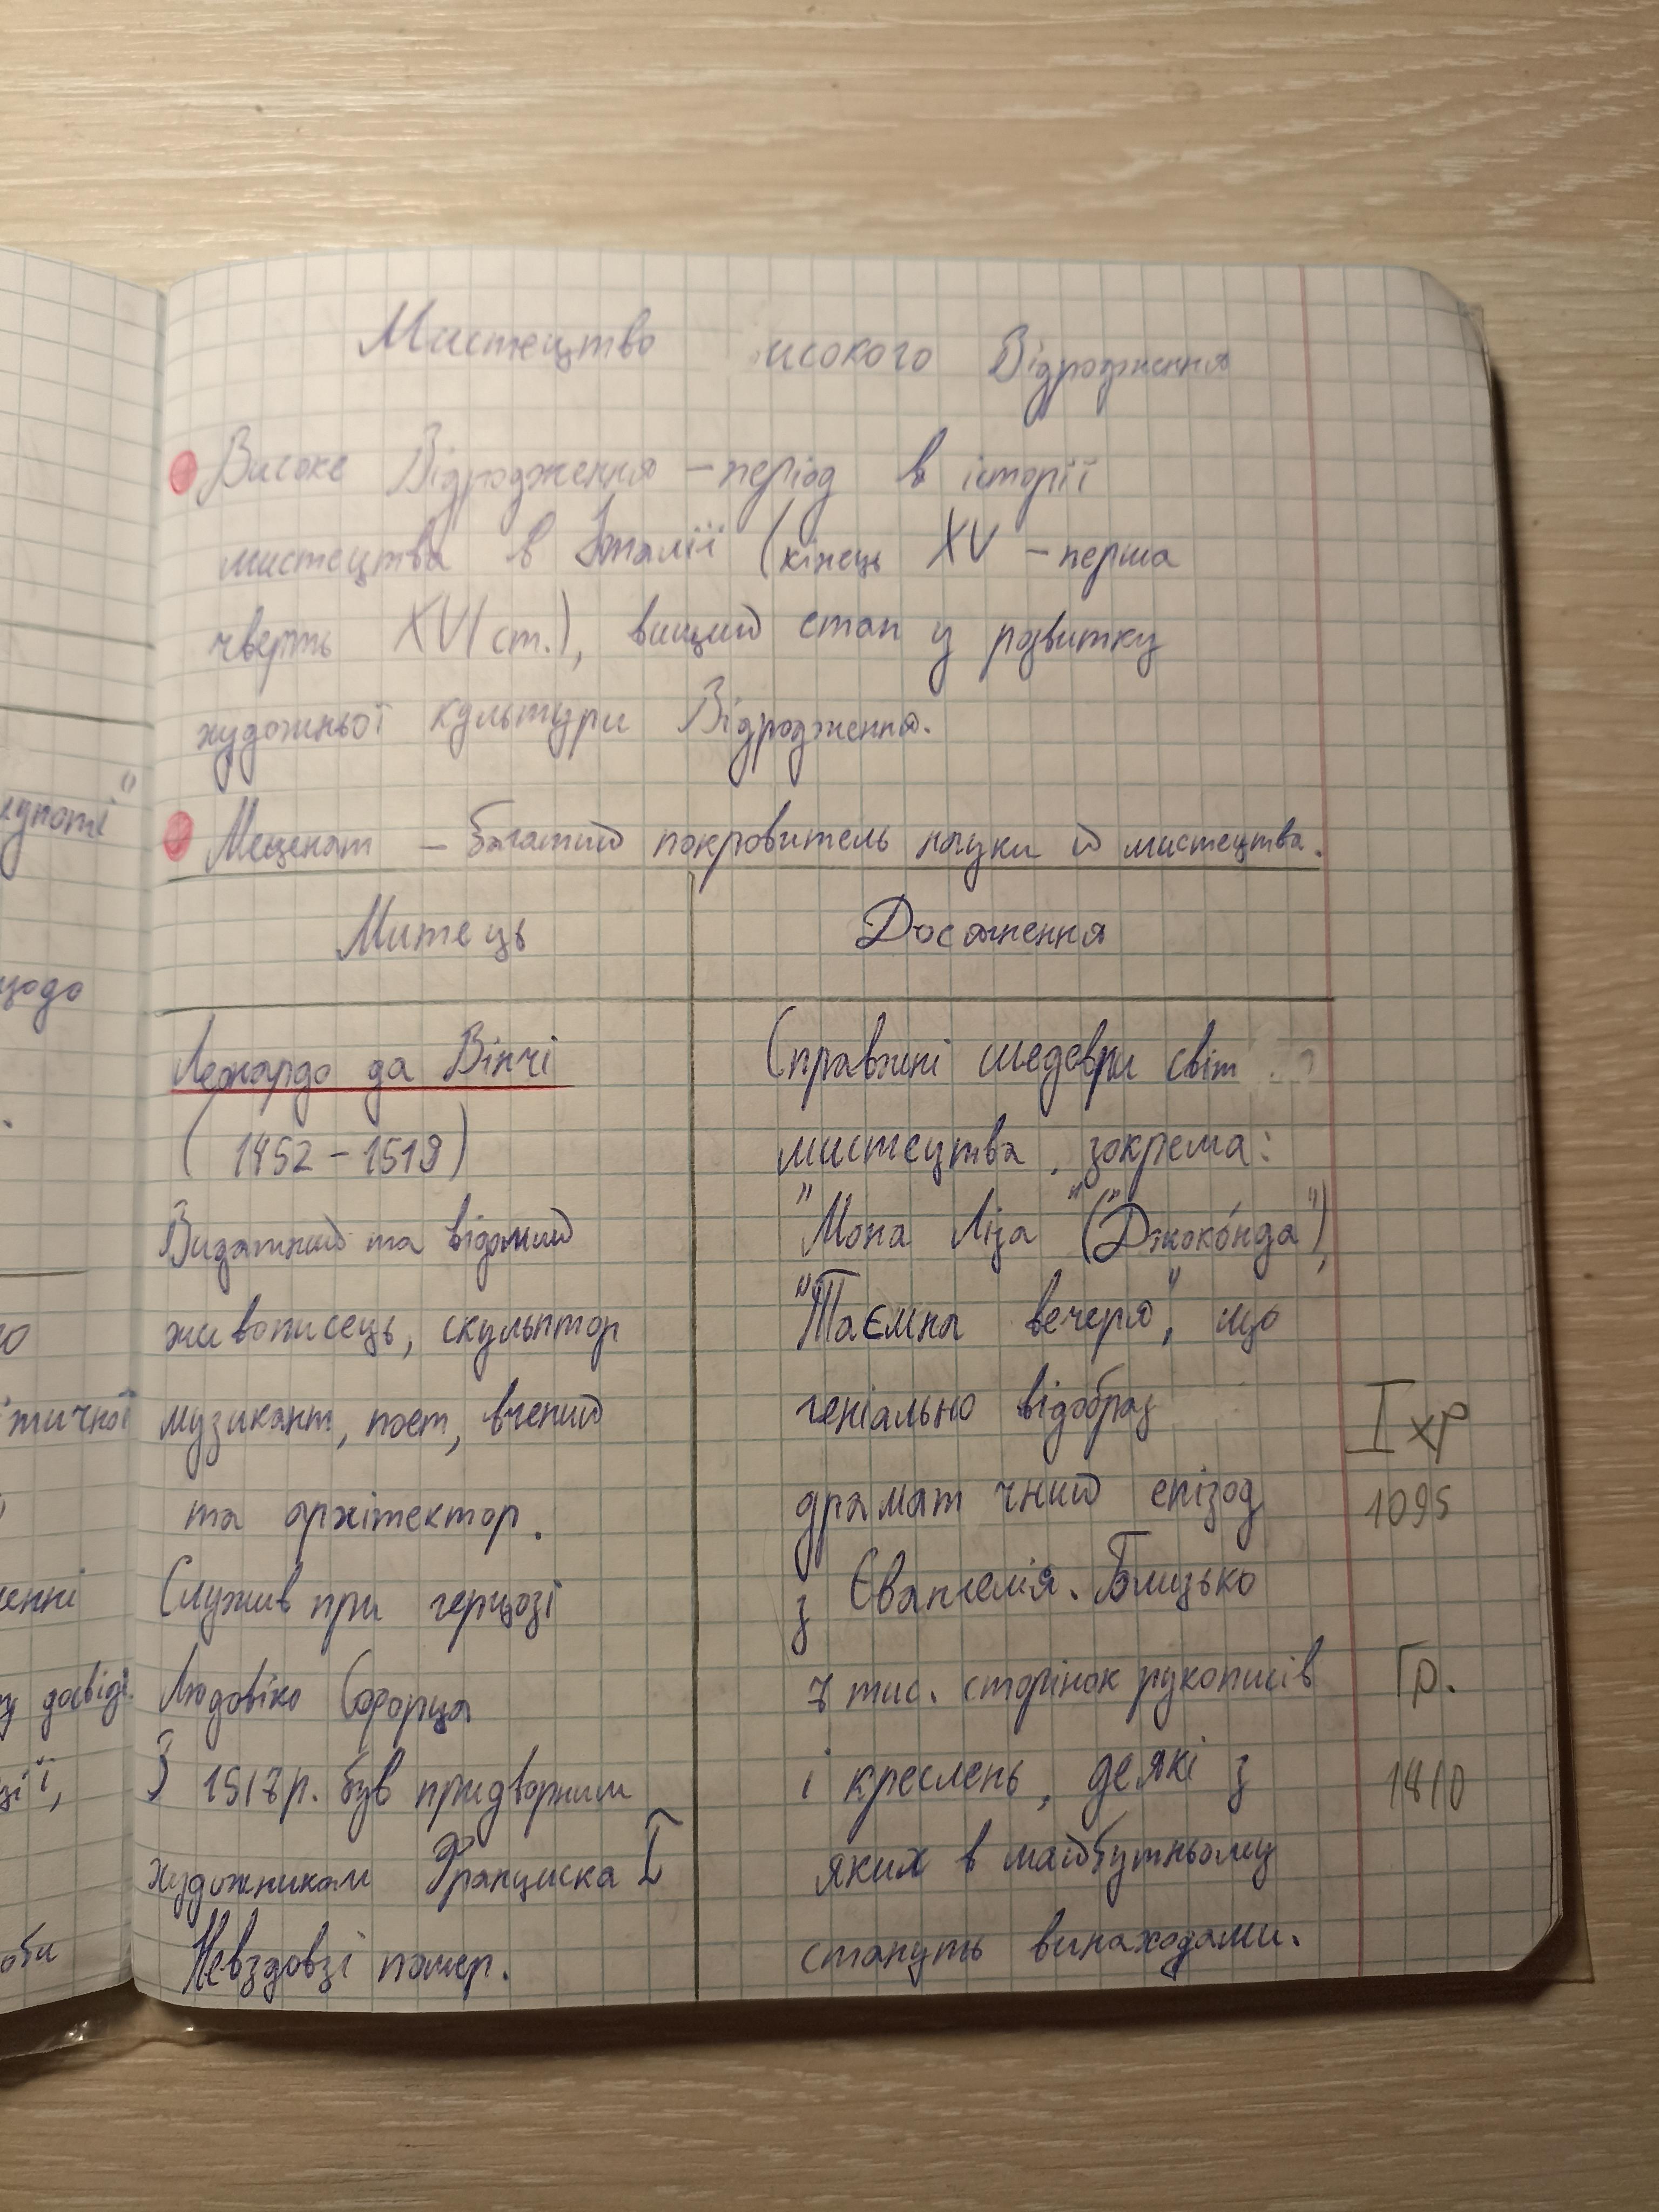 Мистецтво исокого Відродження
Високе Відродження – період в історії
мистецтва в Італії (кінець XV – перша
чверть XVI ст.), вищий етап у розвитку
художньої культури Відродження.
Меценат – багатий покровитель науки й мистецтва.
Митець
Леонардо да Вінчі
(1452 – 1519)
Видатний та відомий
живописець, скульптор
музикант, поет, вчений
та архітектор.
Служив при герцозі
Людовіко Сфорца
З 1517 р. був придворним
художником Франциска I
Невздовзі помер.
Досягнення
Справжні шедеври світ
мистецтва, зокрема:
"Мона Ліза" ("Джоко́нда"),
"Таємна вечеря", що
геніально відобраз
драмат чний епізод
з Євангелія. Близько
7 тис. сторінок рукописів
і креслень, деякі з
яких в майбутньому
стануть винаходами.
I хр
1095
Гр.
1410
щодо
тичної
енні
у досвіді
зії,
оби